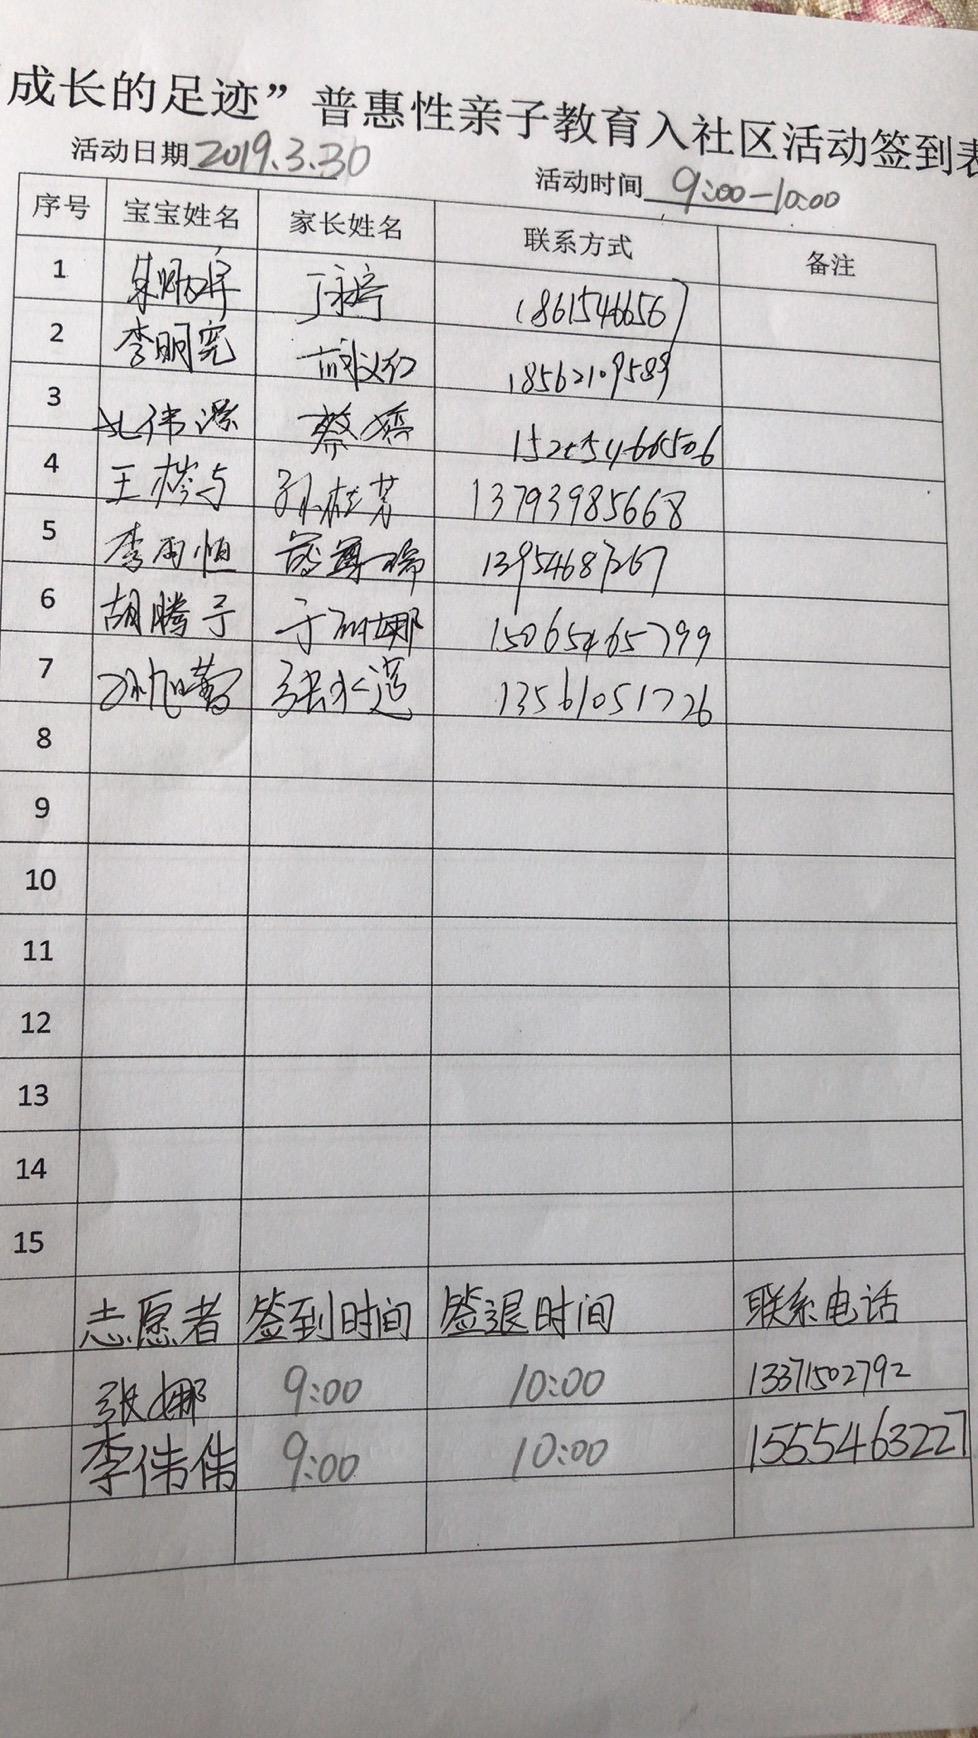 “成长的足迹”普惠性亲子教育入社区活动签到表
活动日期 2019.3.30 活动时间 9:00-10:00
序号 宝宝姓名 家长姓名 联系方式 备注
1
2 李明宪 18562109589
3 蔡娇
4 王梣与 孙桂芳 13793985668
5 李雨恒
6 胡腾予 于丽娜 15065465799
7 13561051726
8
9
10
11
12
13
14
15
志愿者 签到时间 签退时间 联系电话
张娜 9:00 10:00 13371502792
李伟伟 9:00 10:00 1555463227